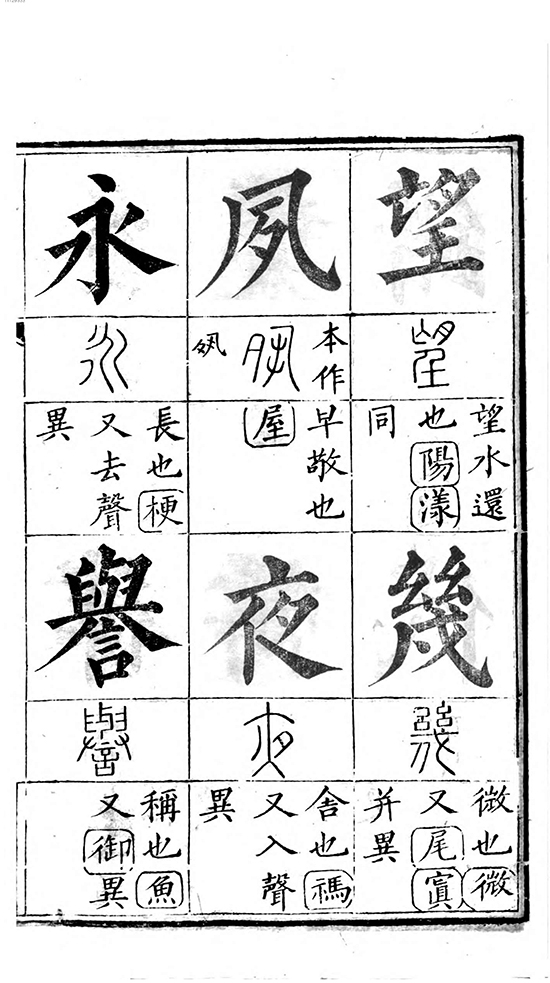 望
望
望水還
也陽漾
同
幾
幾
微也微
又尾寘
并異
夙
本作
夙
早敬也
屋
夜
夜
舍也禡
又入聲
異
永
永
長也梗
又去聲
異
譽
譽
稱也魚
又御異